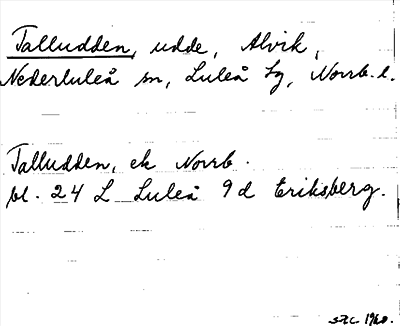 Talludden, udde, Alvik,
Nederluleå sn, Luleå tg, Norrb. l.
Talludden, ek Norrb.
bl. 24 L Luleå 9 d Eriksberg.